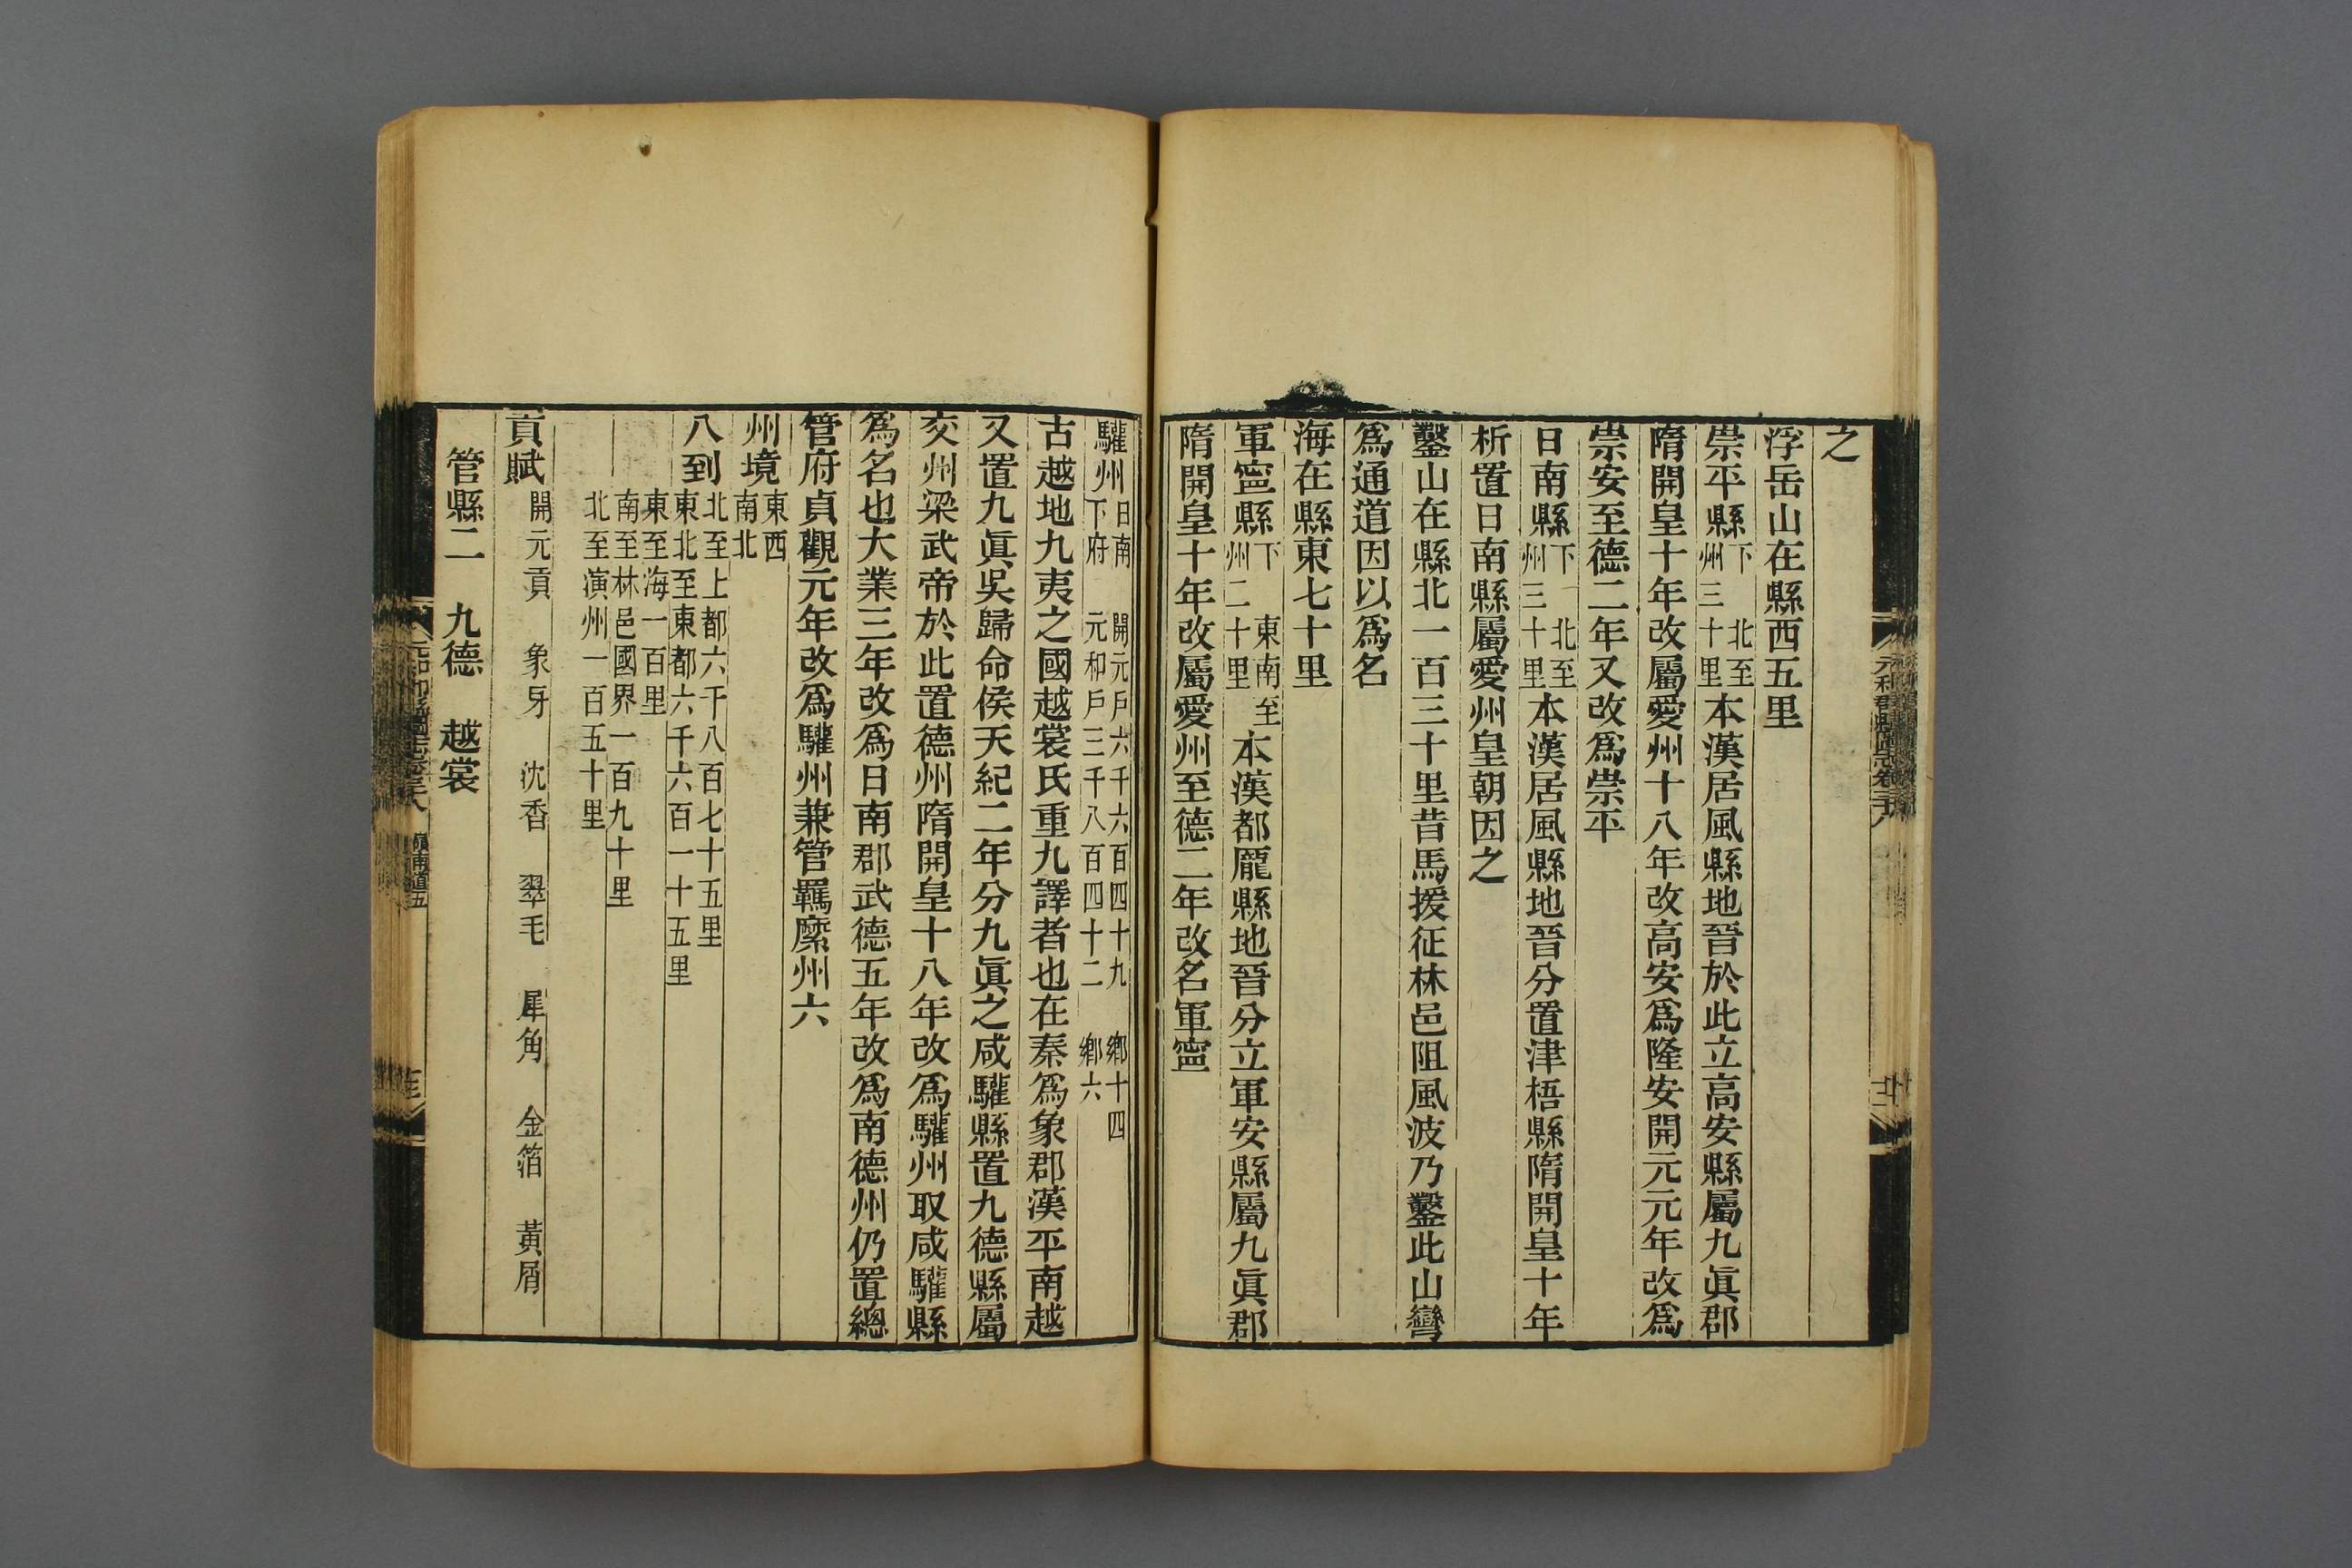 之
浮岳山在縣西五里
崇平縣下 北至州三十里本漢居風縣地晉於此立高安縣屬九眞郡
隋開皇十年改屬愛州十八年改高安爲隆安開元元年改爲
崇安至德二年又改爲崇平
日南縣下 北至州三十里本漢居風縣地晉分置津梧縣隋開皇十年
析置日南縣屬愛州皇朝因之
鑿山在縣北一百三十里昔馬援征林邑阻風波乃鑿此山彎
爲通道因以爲名
海在縣東七十里
軍寍縣下 東南至州二十里本漢都龎縣地晉分立軍安縣屬九眞郡
隋開皇十年改屬愛州至德二年改名軍寍
驩州日南下府 開元戸六千六百四十九 鄉十四 元和戸三千八百四十二 鄉六
古越地九夷之國越裳氏重九譯者也在秦爲象郡漢平南越
又置九眞吳歸命侯天紀二年分九眞之咸驩縣置九德縣屬
交州梁武帝於此置德州隋開皇十八年改爲驩州取咸驩縣
爲名也大業三年改爲日南郡武德五年改爲南德州仍置總
管府貞觀元年改爲驩州兼管羈縻州六
州境東西 南北
八到北至上都六千八百七十五里 東北至東都六千六百一十五里
東至海一百里 南至林邑國界一百九十里
北至演州一百五十里
貢賦開元貢 象牙 沈香 翠毛 犀角 金箔 黃屑
管縣二 九德 越裳
元和郡縣圖志卷三十八
嶺南道五